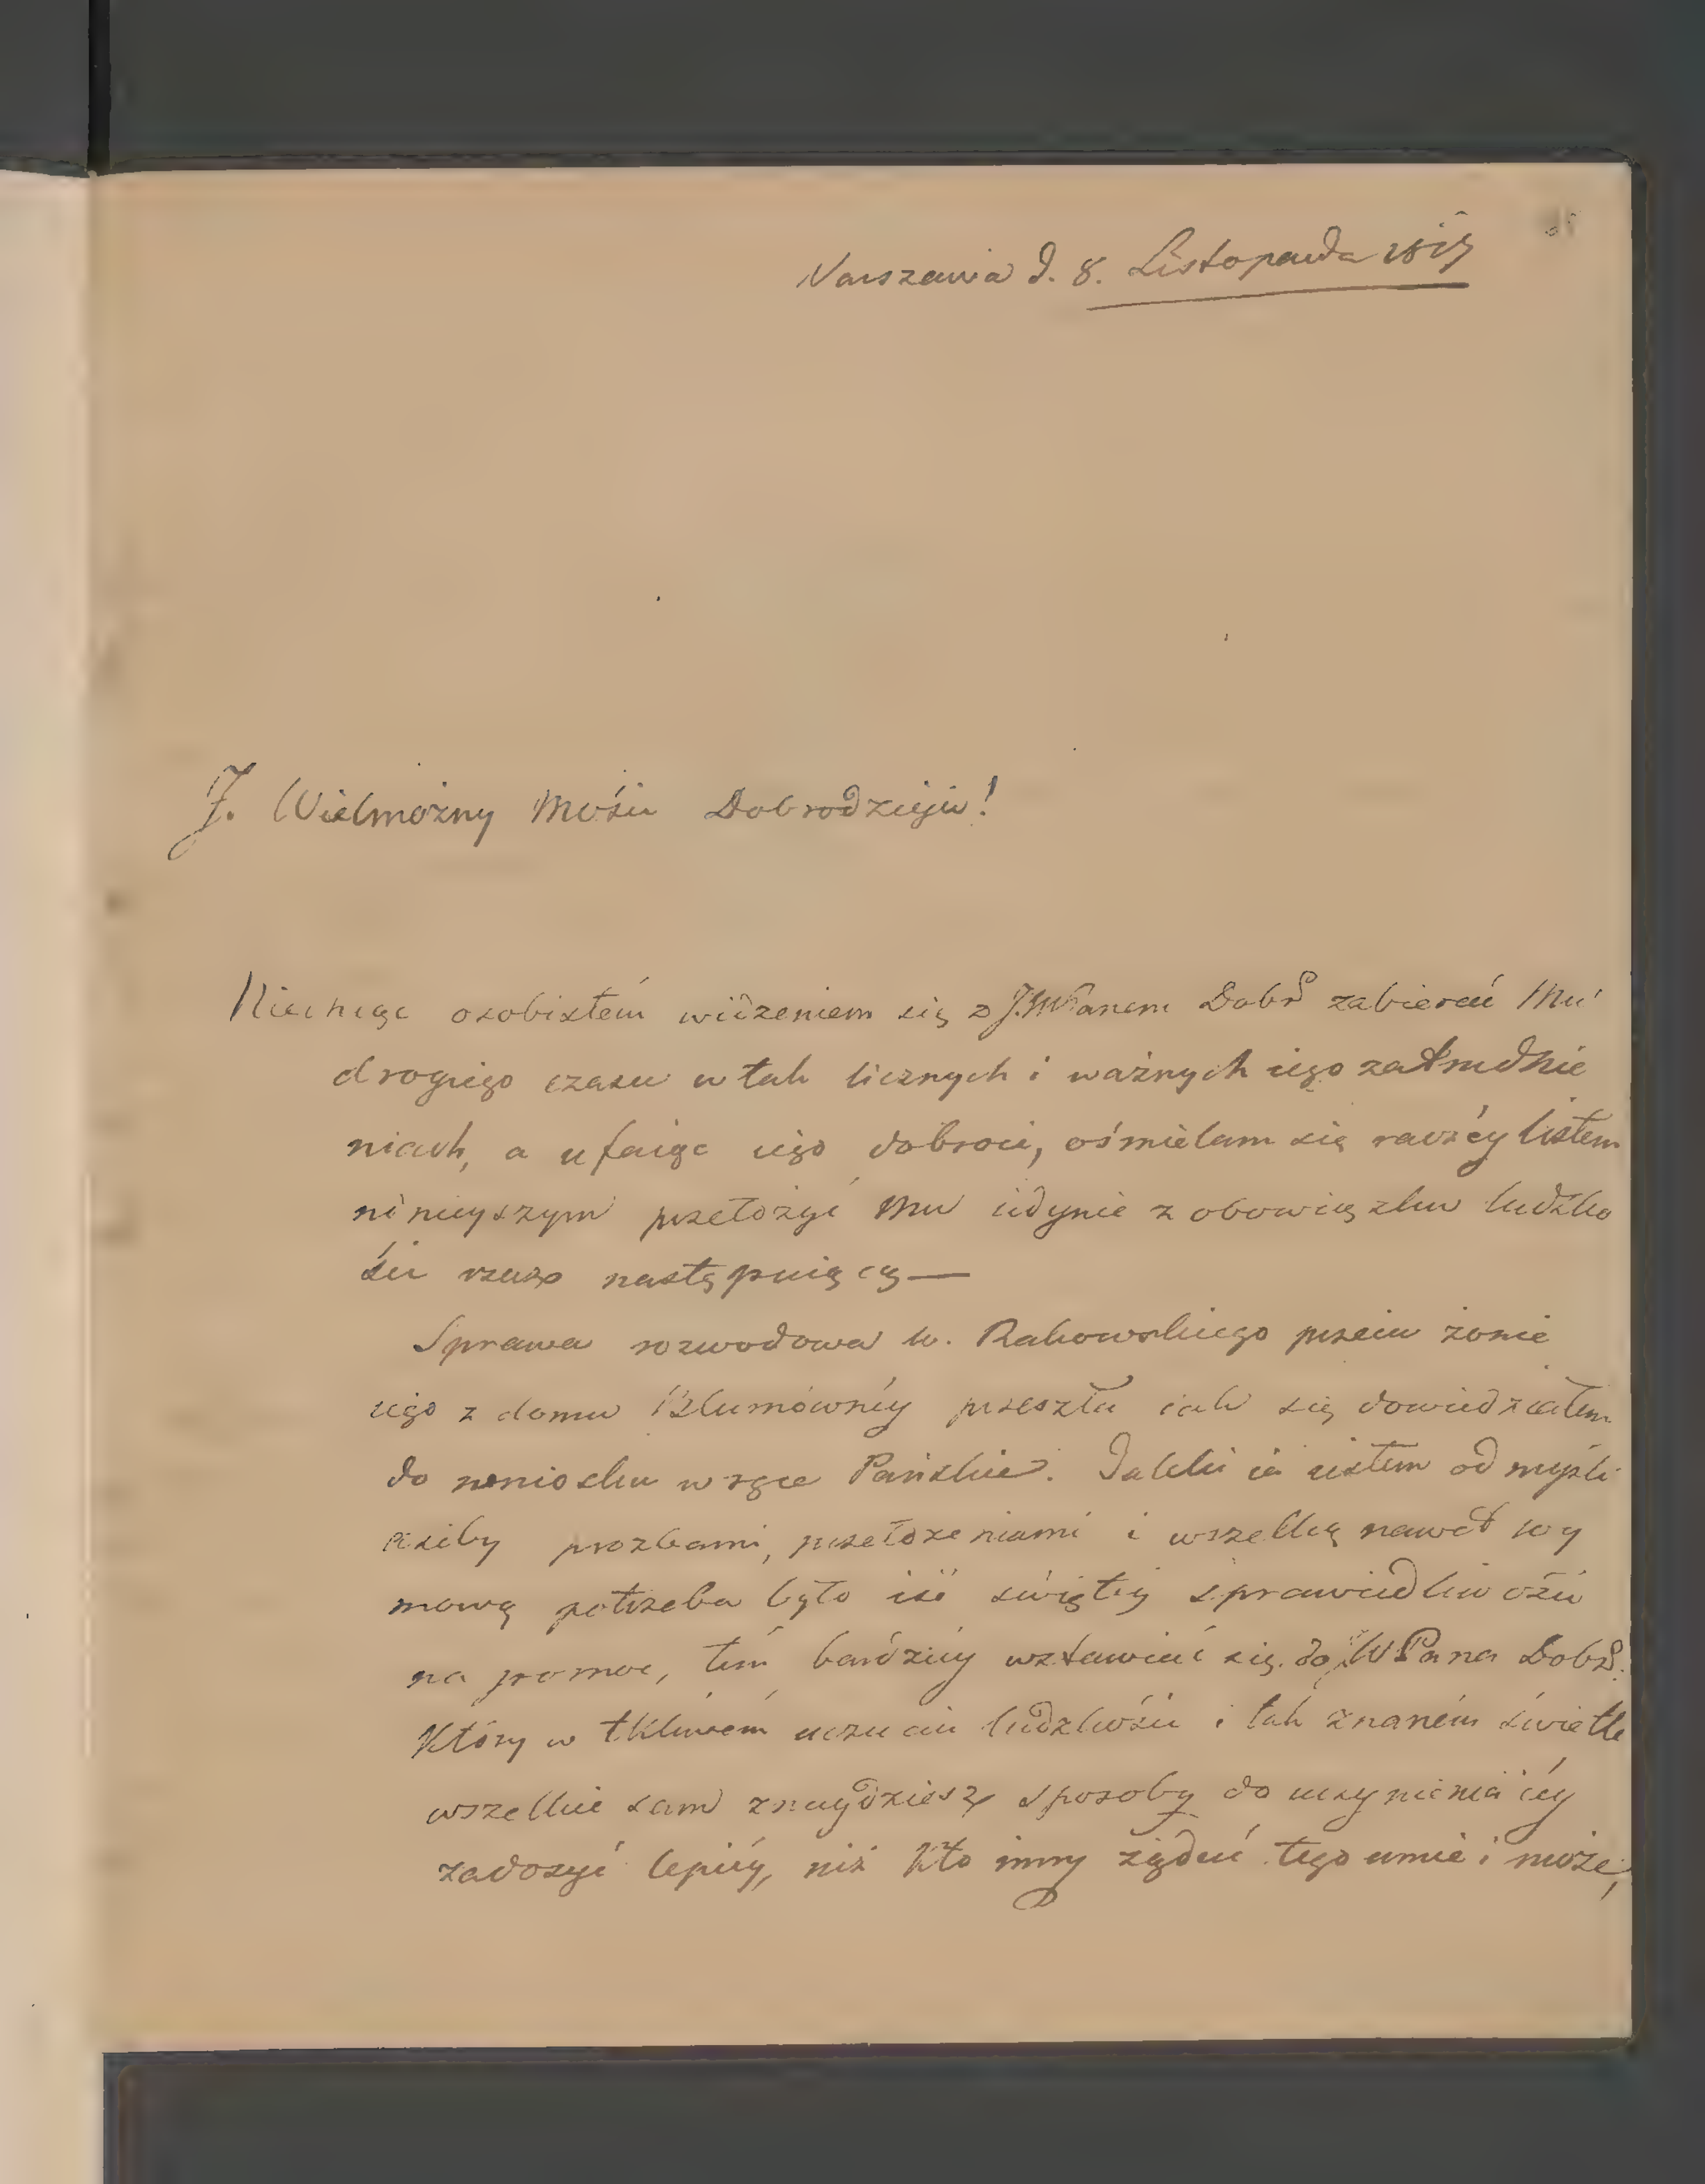 Warszawa d. 8. Listopada
J. Wielmożny Mości Dobrodzieju!
Niechcąc osobistém widzeniem się z J.WPanem Dobr zabierać Mu
drogiego czasu w tak licznych i ważnych iego zatrudnie
niach, a ufaiąc iego dobroci, ośmielam się raczéy listem
ninieyszym przełożyć Mu iedynie z obowiązku ludzko
ści rzecz następuiącą —
Sprawa rozwodowa w. Rakowskiego przeciw żonie
iego z domu Blumównéy przeszła iak się dowiedziałem
do wniosku w ręce Pańskie. Daleki ia iestem od myśli
ażeby prozbami, przełożeniami i wszelką nawet wy
mową potrzeba było iść świętéy sprawiedliwości
na pomoc, tém bardziéy wstawiać się do JWPana Dobr.
Który w tkliwém uczuciu ludzkości i tak znaném świetle
wszelkie sam znaydziesz sposoby do uczynienia iéy
zadosyć lepiéy, niż kto inny żądać tego umie i może,